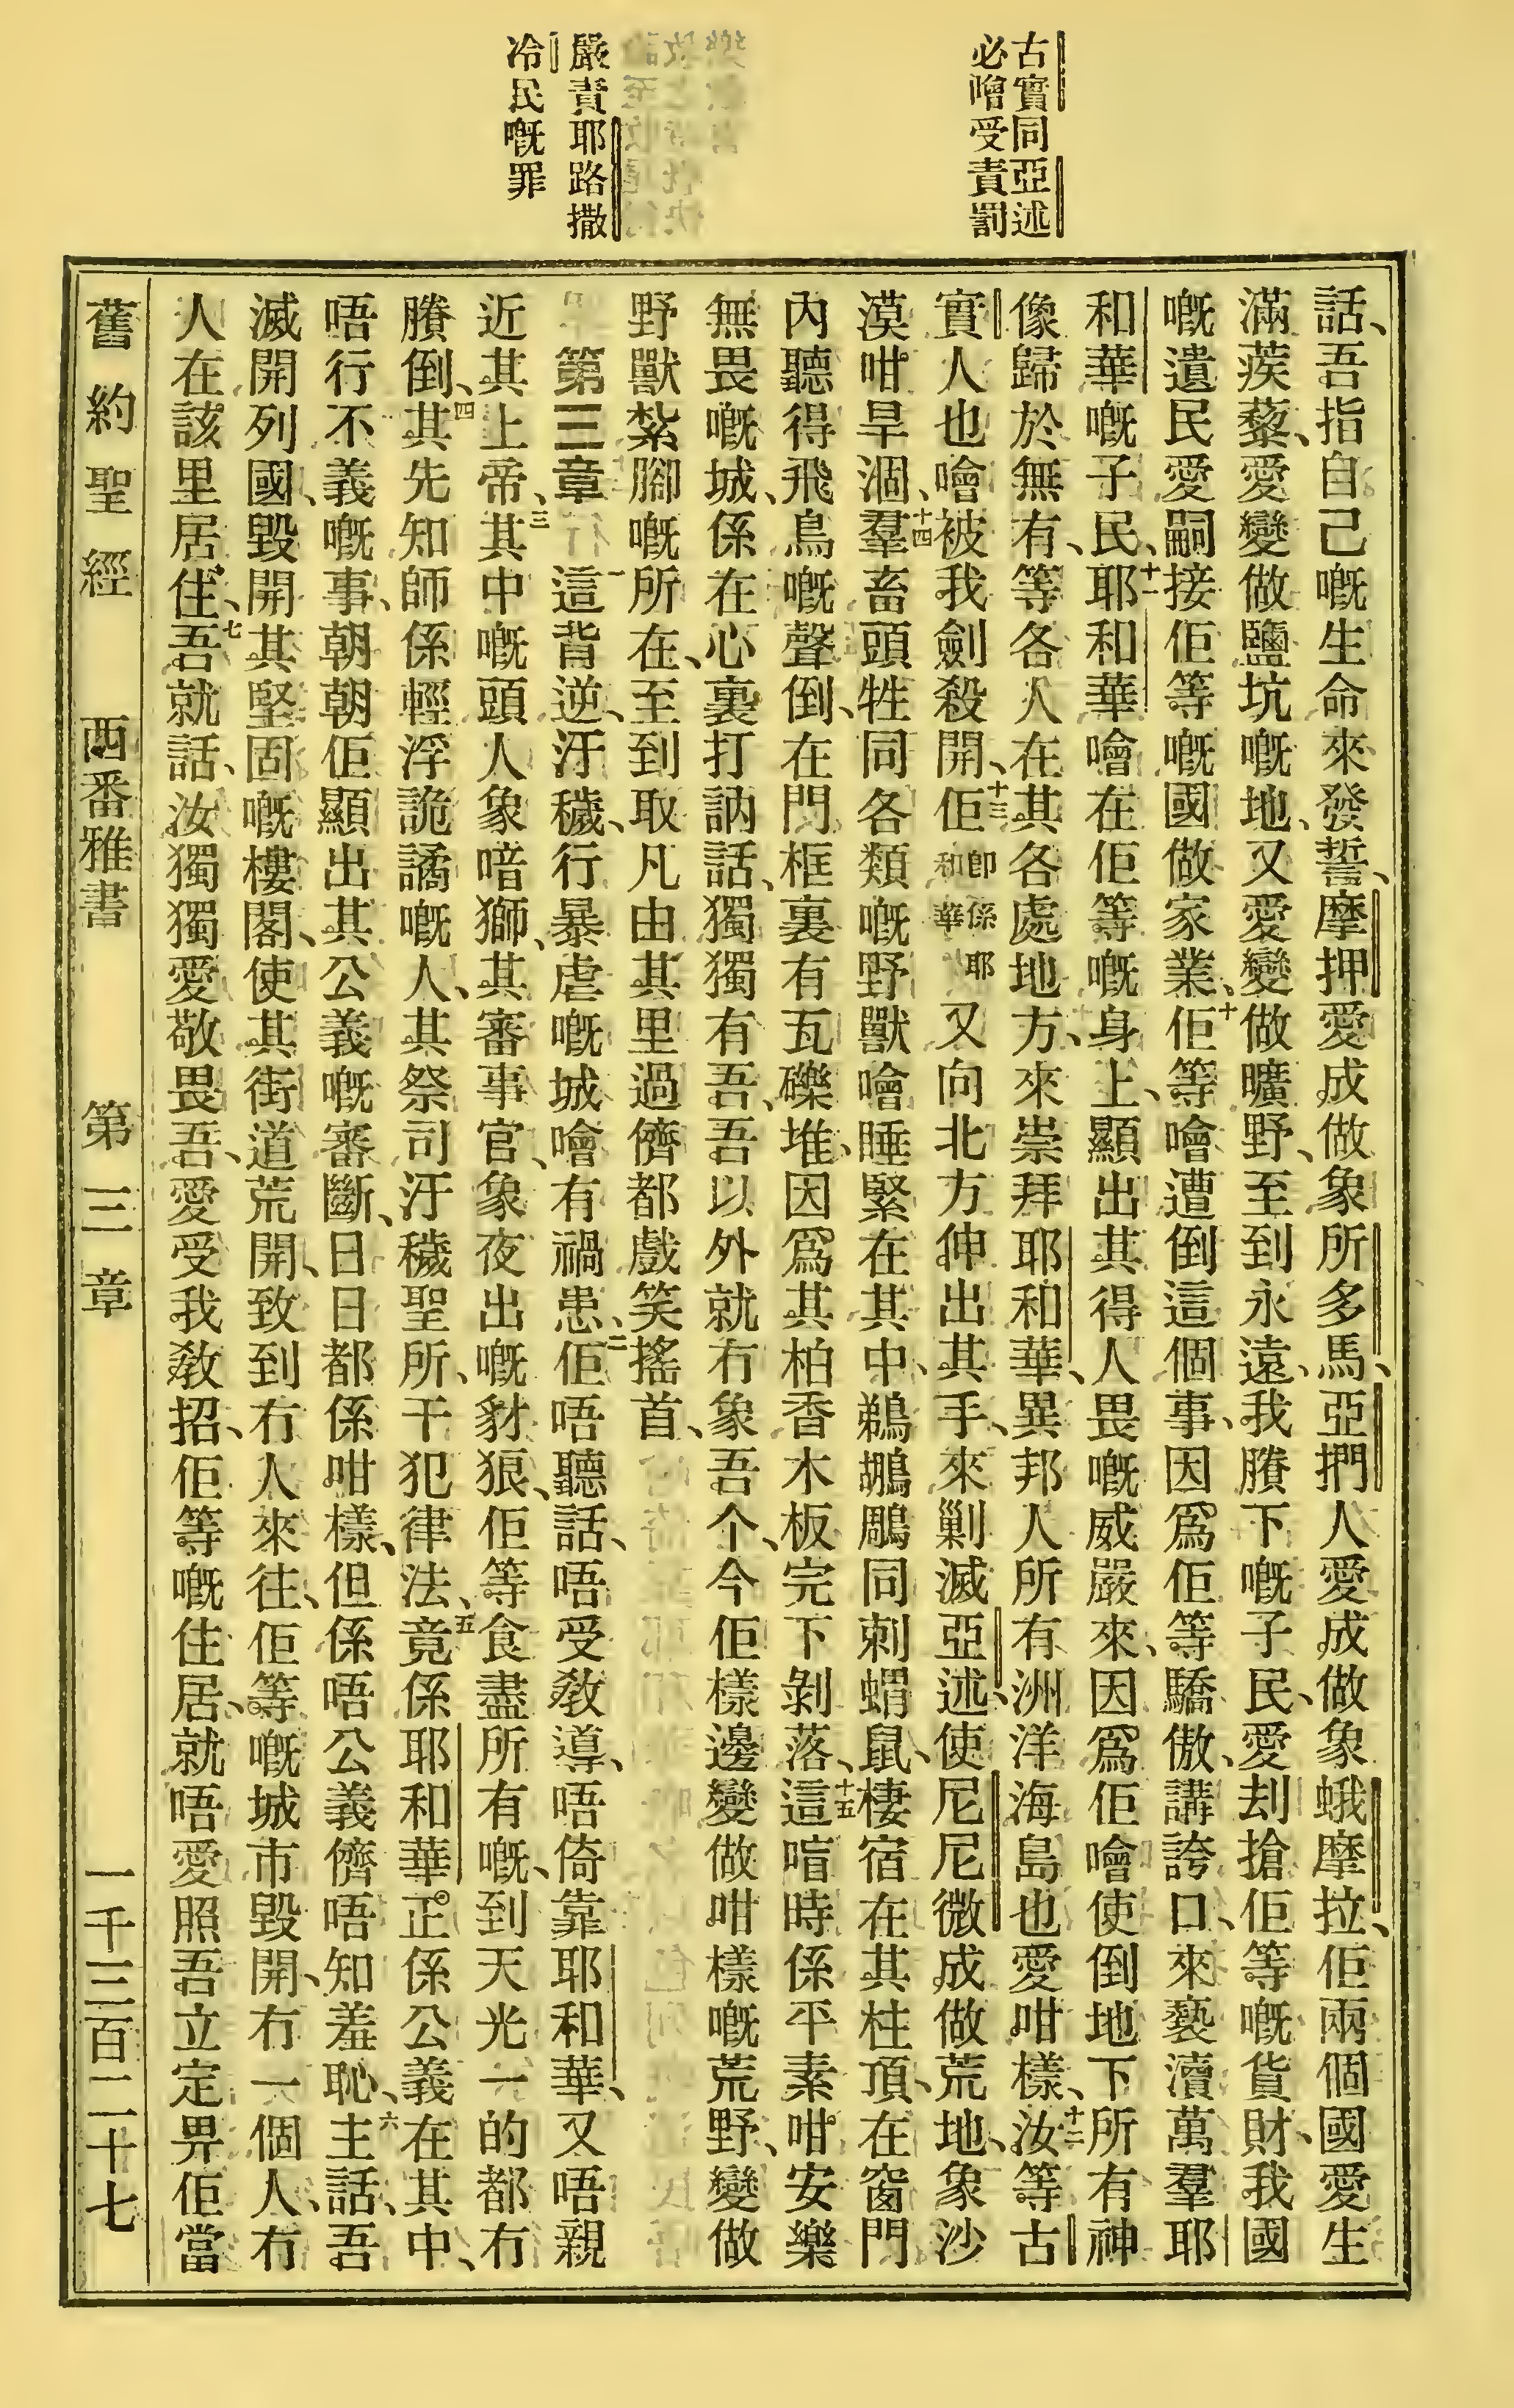 古實同亞述
必噲受責罰
嚴責耶路撒
冷民嘅罪
話、吾指自己嘅生命來發誓、摩押愛成做象所多馬、亞捫人愛成做象蛾摩拉、佢兩個國愛生
滿蒺藜、愛變做鹽坑嘅地、又愛變做曠野、至到永遠、我賸下嘅子民、愛刦搶佢等嘅貨財、我國
嘅遺民愛嗣接佢等嘅國做家業、十佢等噲遭倒這個事、因爲佢等驕傲、講誇口、來褻瀆萬羣耶
和華嘅子民、十一耶和華噲在佢等嘅身上、顯出其得人畏嘅威嚴來、因爲佢噲使倒地下所有神
像歸於無有、等各人在其各處地方、來崇拜耶和華、異邦人所有洲洋海島也愛咁樣、十二汝等古
實人也噲被我劍殺開、十三佢卽係耶和華又向北方伸出其手、來剿滅亞述、使尼尼微成做荒地、象沙
漠咁旱涸、十四羣畜頭牲同各類嘅野獸噲睡緊在其中、鵜鶘鵰同刺蝟鼠、棲宿在其柱頂、在窗門
內聽得飛鳥嘅聲倒、在門框裏有瓦礫堆、因爲其柏香木板完下剝落、十五這喧時係平素咁安樂
無畏嘅城、係在心裏打訥話、獨獨有吾、吾以外就冇象吾个、今佢樣邊變做咁樣嘅荒野、變做
野獸紮腳嘅所在、至到取凡由其里過儕都戲笑搖首、
第三章 一這背逆、汙穢、行暴虐嘅城噲有禍患、二佢唔聽話、唔受敎導、唔倚靠耶和華、又唔親
近其上帝、三其中嘅頭人象喑獅、其審事官、象夜出嘅豺狼、佢等食盡所有嘅、到天光一的都冇
賸倒、四其先知師係輕浮詭譎嘅人、其祭司汙穢聖所、干犯律法、五竟係耶和華正係公義在其中、
唔行不義嘅事、朝朝佢顯出其公義嘅審斷、日日都係咁樣、但係唔公義儕唔知羞恥、六主話、吾
滅開列國、毀開其堅固嘅樓閣、使其街道荒開、致到冇人來往、佢等嘅城市毀開、冇一個人、冇
人在該里居住、七吾就話、汝獨獨愛敬畏吾、愛受我敎招、佢等嘅住居、就唔愛照吾立定畀佢當
舊約聖經 西番雅書 第三章 一千三百二十七